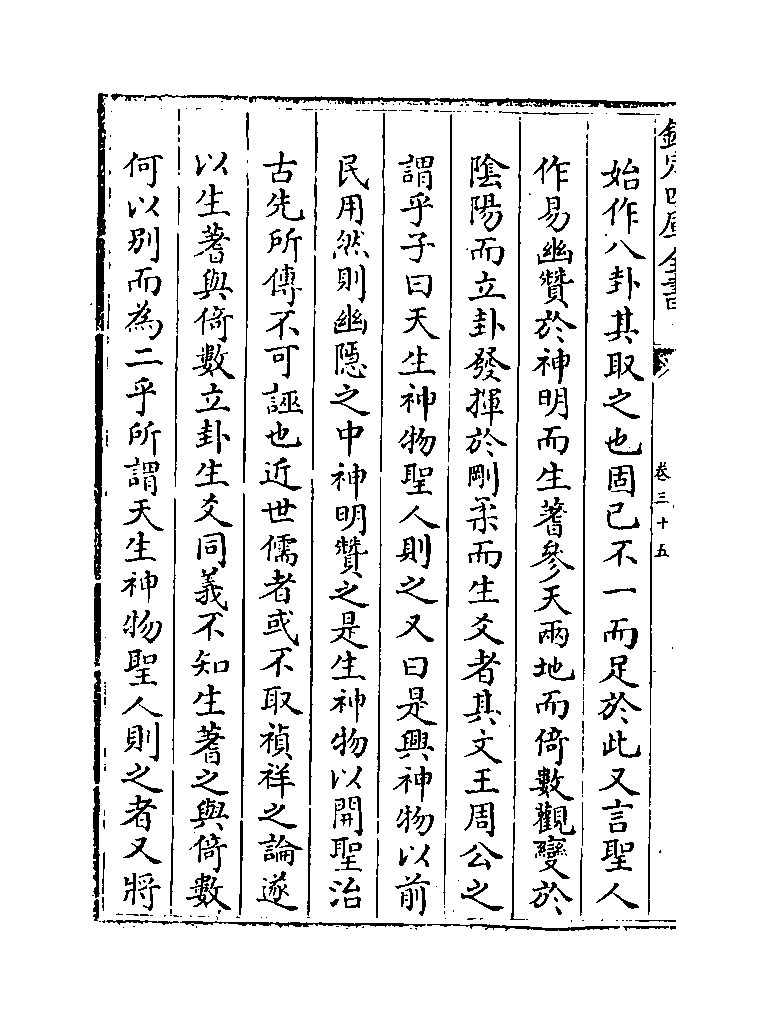 欽定四庫全書
卷三十五
始作八卦其取之也固已不一而足於此又言聖人
作易幽贊於神明而生蓍參天兩地而倚數觀變於
陰陽而立卦發揮於剛柔而生爻者其文王周公之
謂乎子曰天生神物聖人則之又曰是興神物以前
民用然則幽隱之中神明贊之是生神物以開聖治
古先所傳不可誣也近世儒者或不取禎祥之論遂
以生蓍與倚數立卦生爻同義不知生蓍之與倚數
何以別而為二乎所謂天生神物聖人則之者又將